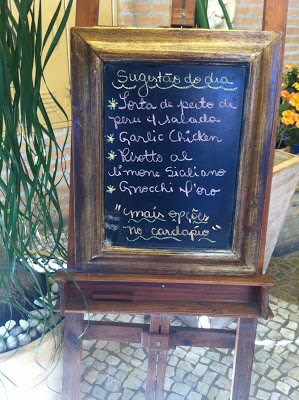 Sugestão do dia
* Torta de peito de
peru c/ salada
* Garlic Chicken
* Risotto al
limone Siciliano
* Gnocchi D'oro
"mais opções
no cardápio"